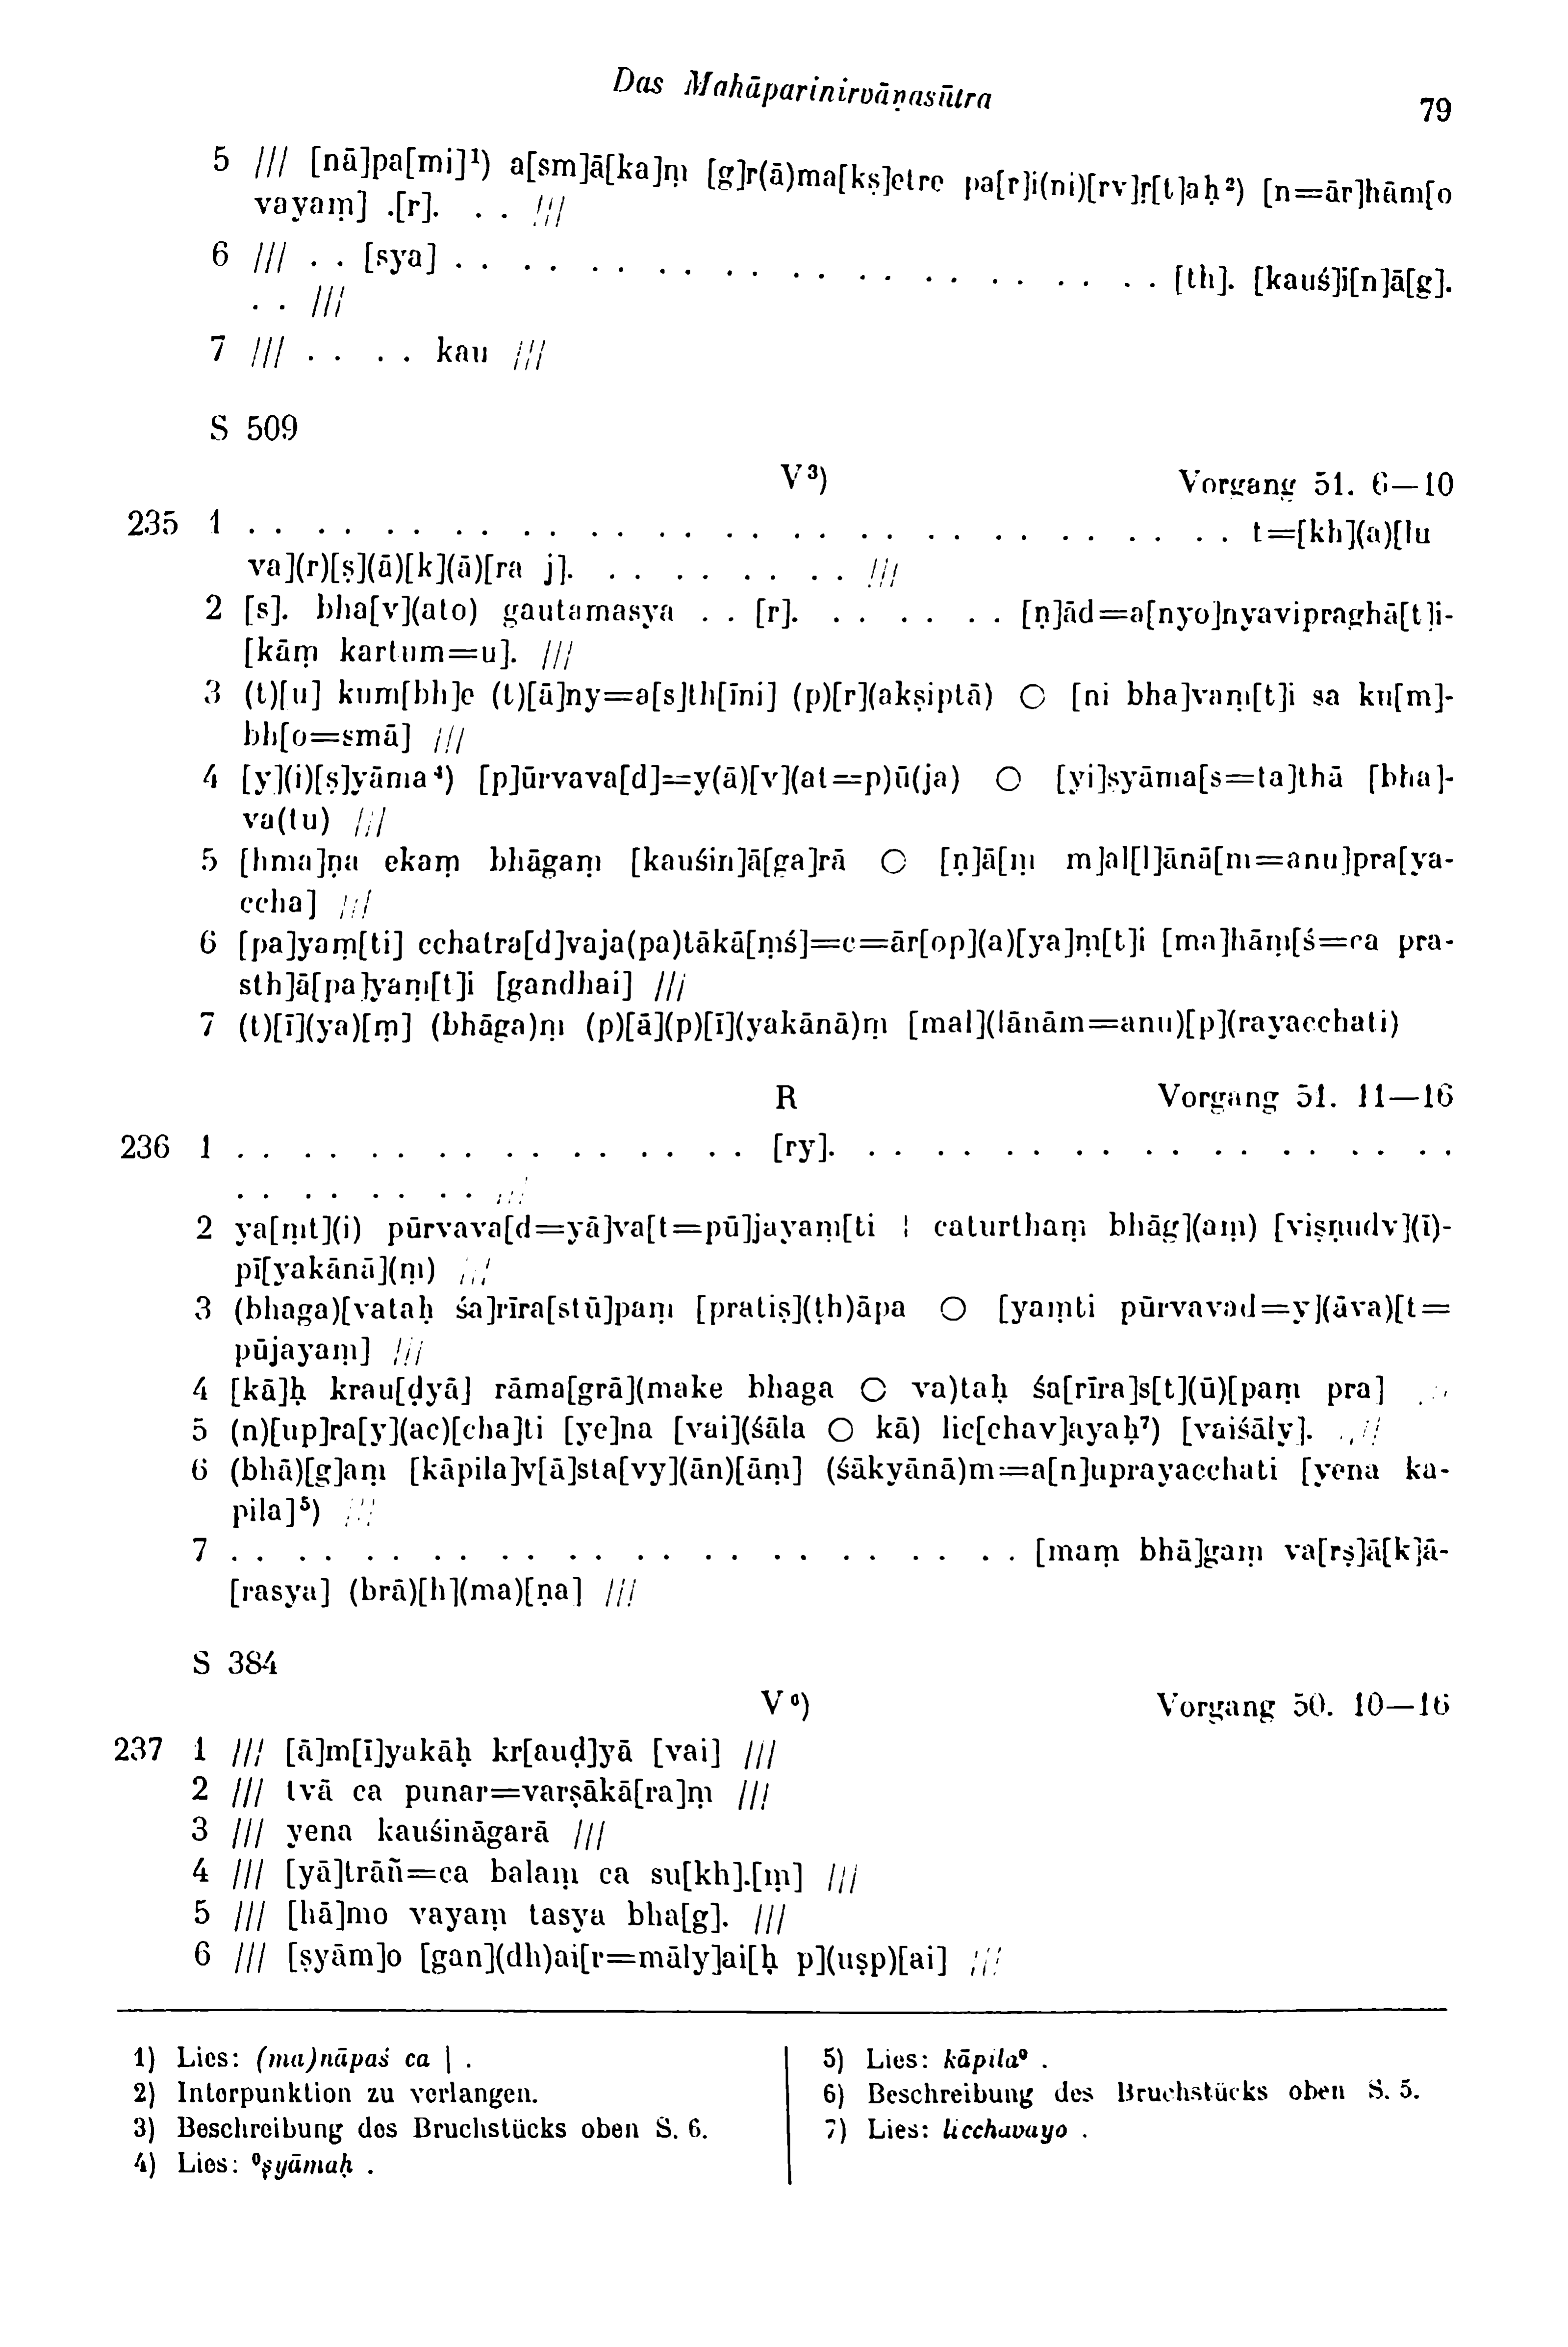 Das Mahāparinirvāṇasūtra
79
5 /// [nā]pa[mi]¹) a[sm]ā[ka]ṃ [g]r(ā)ma[kṣ]etre pa[r]i(ni)[rv]ṛ[t]aḥ²) [n=ār]hām[o
vayaṃ] .[r]. . . ///
6 /// . . [sya] . . . . . . . . . . . . . . . . . . . . . . [th]. [kauś]i[n]ā[g].
. . ///
7 /// . . . . kau ///
S 509
V³)
Vorgang 51. 6—10
235 1 . . . . . . . . . . . . . . . . . . . . . . . . . . . . . . t=[kh](a)[lu
va](r)[ṣ](ā)[k](ā)[ra j]. . . . . . . . . . ///
2 [s]. bha[v](ato) gautamasya . . [r]. . . . . . . . [ṇ]ād=a[nyo]nyavipraghā[t]i-
[kāṃ kartum=u]. ///
3 (t)[u] kum[bh]e (t)[ā]ny=a[s]th[īni] (p)[r](akṣiptā) ○ [ni bha]vaṃ[t]i sa ku[m]-
bh[o=smā] ///
4 [y](i)[ṣ]yāma⁴) [p]ūrvava[d]=y(ā)[v](at=p)ū(ja) ○ [yi]ṣyāma[s=ta]thā [bha]-
va(tu) ///
5 [hma]ṇa ekaṃ bhāgaṃ [kauśin]ā[ga]rā ○ [ṇ]ā[ṃ m]al[l]ānā[m=anu]pra[ya-
ccha] ///
6 [pa]yaṃ[ti] cchatra[d]vaja(pa)tākā[ṃś]=c=ār[op](a)[ya]ṃ[t]i [ma]hāṃ[ś=ca pra-
sth]ā[pa]yaṃ[t]i [gandhai] ///
7 (t)[ī](ya)[ṃ] (bhāga)ṃ (p)[ā](p)[ī](yakānā)ṃ [mal](lānām=anu)[p](rayacchati)
R
Vorgang 51. 11—16
236 1 . . . . . . . . . . . . . . . . [ry]. . . . . . . . . . . . . . . . . . .
. . . . . . . . . ///
2 ya[ṃt](i) pūrvava[d=yā]va[t=pū]jayaṃ[ti | caturthaṃ bhāg](aṃ) [viṣṇudv](ī)-
pī[yakānā](ṃ) ///
3 (bhaga)[vataḥ śa]rīra[stū]paṃ [pratiṣ](ṭh)āpa ○ [yaṃti pūrvavad=y](āva)[t=
pūjayaṃ] ///
4 [kā]ḥ krau[ḍyā] rāma[grā](make bhaga ○ va)taḥ śa[rīra]s[t](ū)[paṃ pra] ///
5 (n)[up]ra[y](ac)[cha]ti [ye]na [vai](śāla ○ kā) lic[chav]ayaḥ⁷) [vaiśāly]. ///
6 (bhā)[g]aṃ [kāpila]v[ā]sta[vy](ān)[āṃ] (śākyānā)m=a[n]uprayacchati [yena ka-
pila]⁵) ///
7 . . . . . . . . . . . . . . . . . . . . . . . . [maṃ bhā]gaṃ va[rṣ]ā[k]ā-
[rasya] (brā)[h](ma)[ṇa] ///
S 384
V⁶)
Vorgang 50. 10—16
237 1 /// [ā]m[ī]yakāḥ kr[auḍ]yā [vai] ///
2 /// tvā ca punar=varṣākā[ra]ṃ ///
3 /// yena kauśināgarā ///
4 /// [yā]trāñ=ca balaṃ ca su[kh].[ṃ] ///
5 /// [hā]mo vayaṃ tasya bha[g]. ///
6 /// [ṣyām]o [gan](dh)ai[r=māly]ai[ḥ p](uṣp)[ai] ///
1) Lies: (ma)nāpaś ca | .
2) Interpunktion zu verlangen.
3) Beschreibung des Bruchstücks oben S. 6.
4) Lies: °ṣyāmaḥ .
5) Lies: kāpila° .
6) Beschreibung des Bruchstücks oben S. 5.
7) Lies: licchavayo .